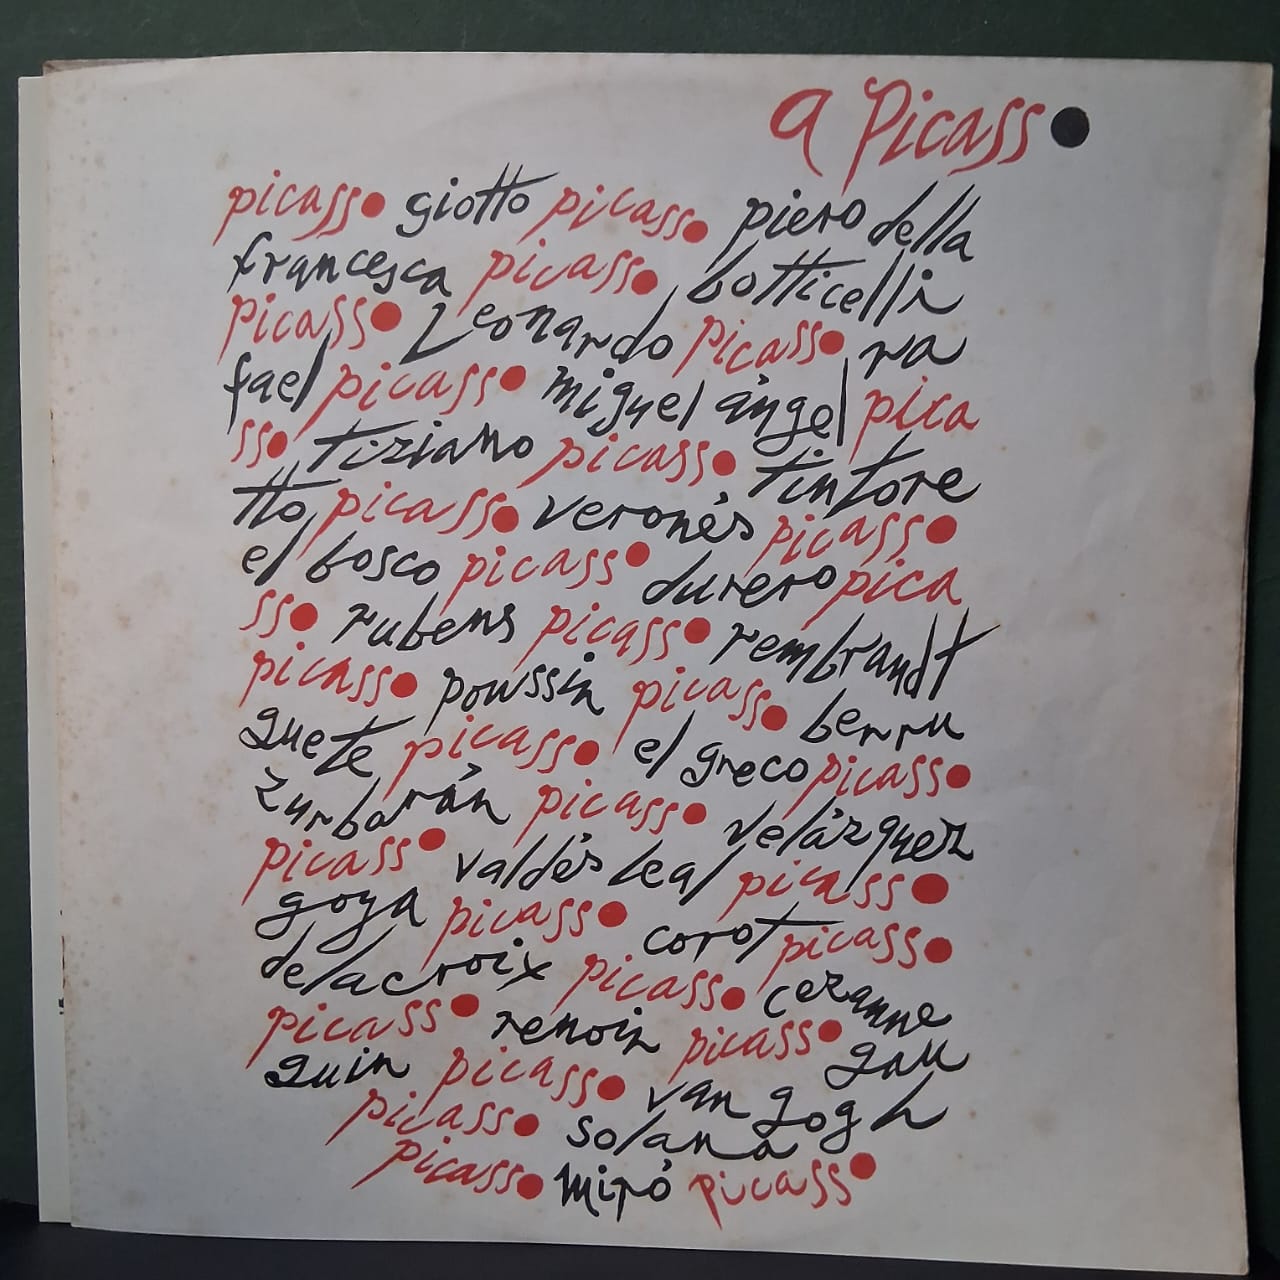 a Picasso
picasso giotto picasso piero della
francesca picasso botticelli
picasso Leonardo picasso ra
fael picasso miguel ángel pica
sso tiziano picasso tintore
tto picasso veronés picasso
el bosco picasso durero pica
sso rubens picasso rembrandt
picasso poussin picasso berru
guete picasso el greco picasso
zurbarán picasso velázquez
picasso valdés leal picasso
goya picasso corot picasso
delacroix picasso cezanne
picasso renoir picasso gau
guin picasso van gogh
picasso solana
picasso miró picasso